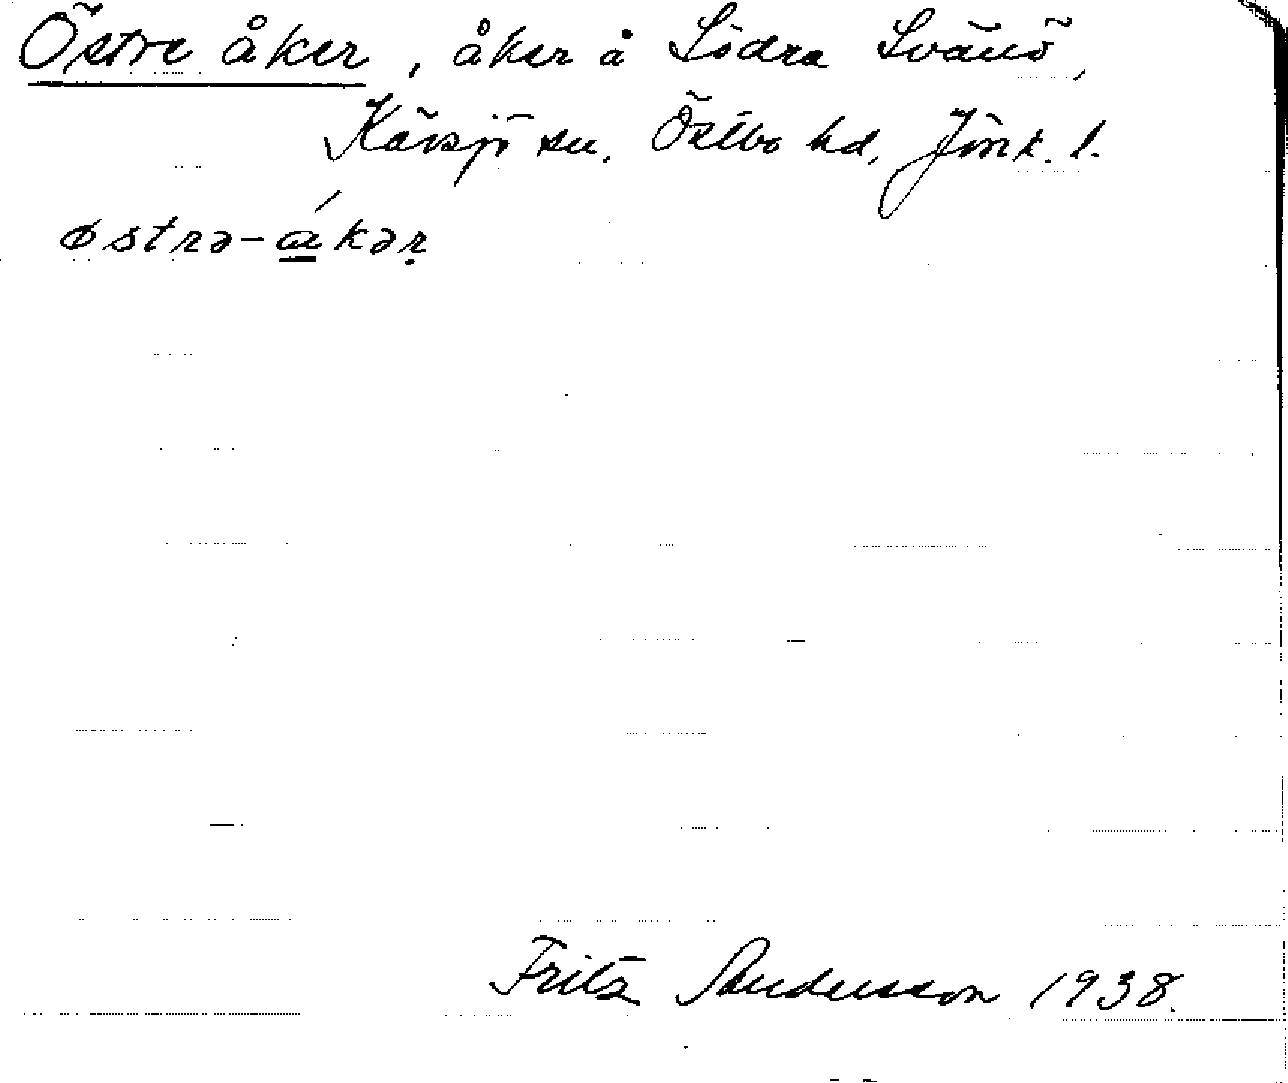 Östre åker, åker å Södra Svänö,
Kävsjö sn. Östbo hd, Jönk. l.
østrə-ákər
Fritz Andersson 1938.